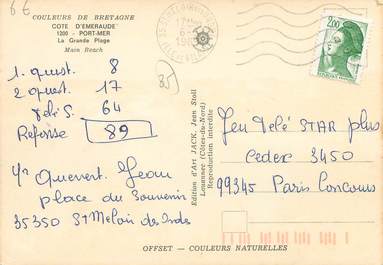 6€
COULEURS DE BRETAGNE
COTE D'EMERAUDE
1200 - PORT-MER
La Grande Plage
Main Beach
2,00
1. quest. 8
2. quest. 17
Télé S. 64
Réponse 89
35
Yr Quevert Jean
place du Souvenir
35350 St Meloir des Ondes
Edition d'Art JACK, Jean Stoll
Louannec (Côtes-du-Nord)
Reproduction interdite
Jeu Télé STAR plus
Cedex 3450
99345 Paris Concours
OFFSET — COULEURS NATURELLES